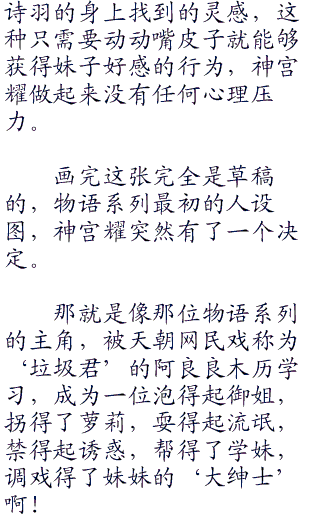 诗羽的身上找到的灵感，这
种只需要动动嘴皮子就能够
获得妹子好感的行为，神宫
耀做起来没有任何心理压
力。
画完这张完全是草稿
的，物语系列最初的人设
图，神宫耀突然有了一个决
定。
那就是像那位物语系列
的主角，被天朝网民戏称为
‘垃圾君’的阿良良木历学
习，成为一位泡得起御姐，
拐得了萝莉，耍得起流氓，
禁得起诱惑，帮得了学妹，
调戏得了妹妹的‘大绅士’
啊！